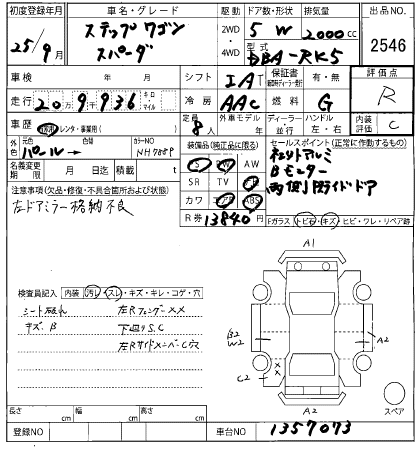 初度登録年月 車名・グレード 駆動 ドア数・形状 排気量 出品NO.
25/9月 ステップワゴン スパーダ 2WD・4WD 5 W 2000cc 2546
型式 DBA-RK5
車検 年 月 シフト IAT 保証書 有・無 評価点
走行 20万9千936 キロ マイル 冷房 AAC 燃料 G R
車歴 自家用・レンタ・事業用( ) 定員 8人 外車モデル 年 ディーラー 並行 ハンドル 左・右 内装評価 C
外色 元色 パール 色替 カラーNO NH788P
装備品(純正品に限る) セールスポイント(正常に作動するもの)
名義変更期限 月 日迄 積載 t
PS PW AW
SR TV ナビ
カワ エアB ABS
R券 13840円
純正アルミ
Bモニター
両側スライドドア
注意事項(欠品・修復・不具合箇所および状態)
左ドアミラー格納不良
Fガラス トビ石・キズ・ヒビ・ワレ・リペア跡
検査員記入 内装 汚レ・スレ・キズ・キレ・コゲ・穴
シート破れ 左Rフェンダー××
キズ、B 下廻りS,C
左RサイドメンバーC穴
A1
B2
W2
A2
××
C2
A2
スペア
長さ cm 幅 cm 高さ cm
登録NO 車台NO 1357073